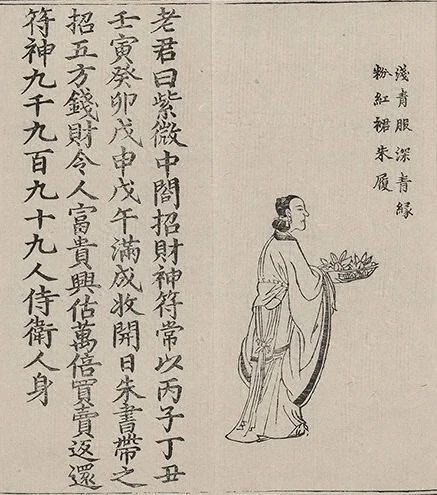 淺青服深青緣
粉紅裙朱履
老君曰紫微中閤招財神符常以丙子丁丑
壬寅癸卯戊申戊午滿成收開日朱書帶之
招五方錢財令人富貴興估萬倍買賣返還
符神九千九百九十九人侍衛人身